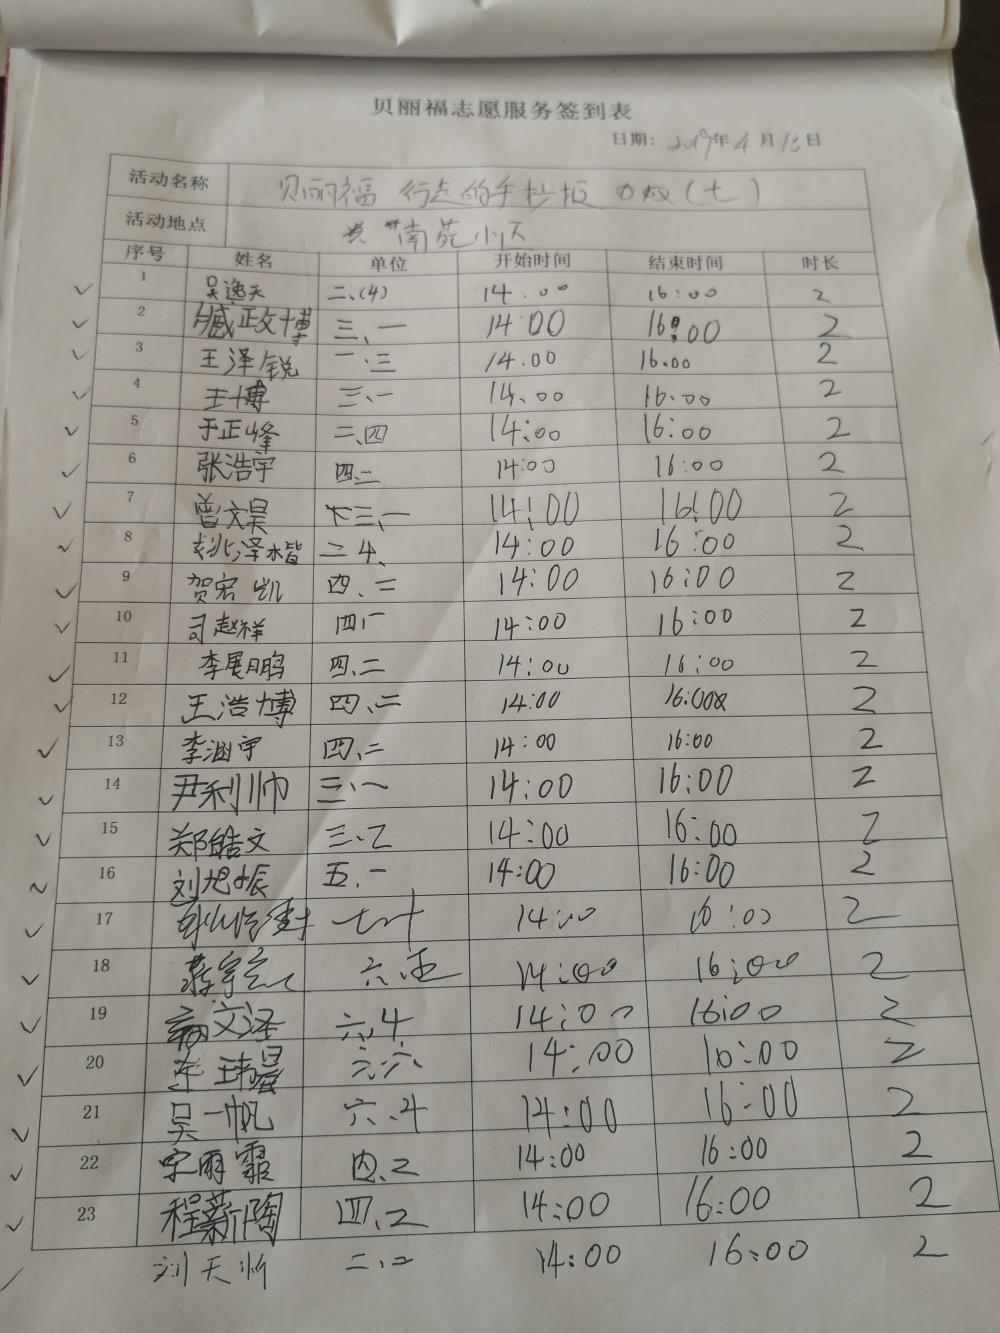 贝丽福志愿服务签到表
日期：2019年4月13日
活动名称 贝丽福 行走的手抄报 (七)
活动地点 南苑小区
序号 姓名 单位 开始时间 结束时间 时长
1 吴逸天 二、(4) 14.00 16:00 2
2 臧政博 三、一 14:00 16:00 2
3 王泽锐 一.三 14.00 16.00 2
4 王博 三、一 14.00 16.00 2
5 于正峰 二、四 14:00 16:00 2
6 张浩宇 四、二 14:00 16:00 2
7 曾文昊 三、一 14:00 16:00 2
8 二4、 14:00 16:00 2
9 贺宏凯 四、二 14:00 16:00 2
10 司赵祥 四一 14:00 16:00 2
11 李展鹏 四、二 14:00 16:00 2
12 王浩博 四、二 14:00 16:00 2
13 李涵宇 四、二 14:00 16:00 2
14 尹利帅 三、一 14:00 16:00 2
15 郑皓文 三、乙 14:00 16:00 2
16 刘旭振 五、一 14:00 16:00 2
17 14:00 16:00 2
18 六、五 14:00 16:00 2
19 文泽 六、4 14:00 16:00 2
20 六、六 14:00 16:00 2
21 吴一帆 六、4 14:00 16:00 2
22 宋雨霜 四、2 14:00 16:00 2
23 程薪陶 四、2 14:00 16:00 2
刘天昕 二、二 14:00 16:00 2